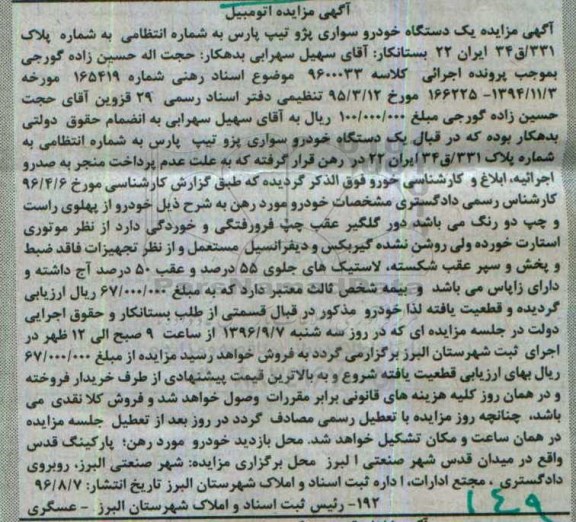 آگهی مزایده اتومبیل
آگهی مزایده یک دستگاه خودرو سواری پژو تیپ پارس به شماره انتظامی به شماره پلاک
۳۳۱/ق۳۴ ایران ۲۲ بستانکار: آقای سهیل سهرابی بدهکار: حجت اله حسین زاده گورجی
بموجب پرونده اجرائی کلاسه ۹۶۰۰۰۳۳ موضوع اسناد رهنی شماره ۱۶۵۴۱۹ مورخه
۱۳۹۴/۱۱/۳- ۱۶۶۲۲۵ مورخ ۹۵/۳/۱۲ تنظیمی دفتر اسناد رسمی ۲۹ قزوین آقای حجت
حسین زاده گورجی مبلغ ۱۰۰/۰۰۰/۰۰۰ ریال به آقای سهیل سهرابی به انضمام حقوق دولتی
بدهکار بوده که در قبال یک دستگاه خودرو سواری پزو تیپ پارس به شماره انتظامی به
شماره پلاک ۳۳۱/ق۳۴ ایران ۲۲ در رهن قرار گرفته که به علت عدم پرداخت منجر به صدرو
اجرائیه، ابلاغ و کارشناسی خورو فوق الذکر گردیده که طبق گزارش کارشناسی مورخ ۹۶/۴/۶
کارشناس رسمی دادگستری مشخصات خودرو مورد رهن به شرح ذیل خودرو از پهلوی راست
و چپ دو رنگ می باشد دور گلگیر عقب چپ فرورفتگی و خوردگی دارد از نظر موتوری
استارت خورده ولی روشن نشده گیربکس و دیفرانسیل مستعمل و از نظر تجهیزات فاقد ضبط
و پخش و سپر عقب شکسته، لاستیک های جلوی ۵۵ درصد و عقب ۵۰ درصد آج داشته و
دارای زاپاس می باشد و بیمه شخص ثالث معتبر دارد که به مبلغ ۶۷/۰۰۰/۰۰۰ ریال ارزیابی
گردیده و قطعیت یافته لذا خودرو مذکور در قبال قسمتی از طلب بستانکار و حقوق اجرایی
دولت در جلسه مزایده ای که در روز سه شنبه ۱۳۹۶/۹/۷ از ساعت ۹ صبح الی ۱۲ ظهر در
اجرای ثبت شهرستان البرز برگزارمی گردد به فروش خواهد رسید مزایده از مبلغ ۶۷/۰۰۰/۰۰۰
ریال بهای ارزیابی قطعیت یافته شروع و به بالاترین قیمت پیشنهادی از طرف خریدار فروخته
و در همان روز کلیه هزینه های قانونی برابر مقررات وصول خواهد شد و فروش کلا نقدی می
باشد، چنانچه روز مزایده با تعطیل رسمی مصادف گردد در روز بعد از تعطیل جلسه مزایده
در همان ساعت و مکان تشکیل خواهد شد. محل بازدید خودرو مورد رهن؛ پارکینگ قدس
واقع در میدان قدس شهر صنعتی ا لبرز محل برگزاری مزایده: شهر صنعتی البرز، روبروی
دادگستری ، مجتع ادارات، ا داره ثبت اسناد و املاک شهرستان البرز تاریخ انتشار: ۹۶/۸/۷
۱۹۲- رئیس ثبت اسناد و املاک شهرستان البرز - عسگری
۱۴۹